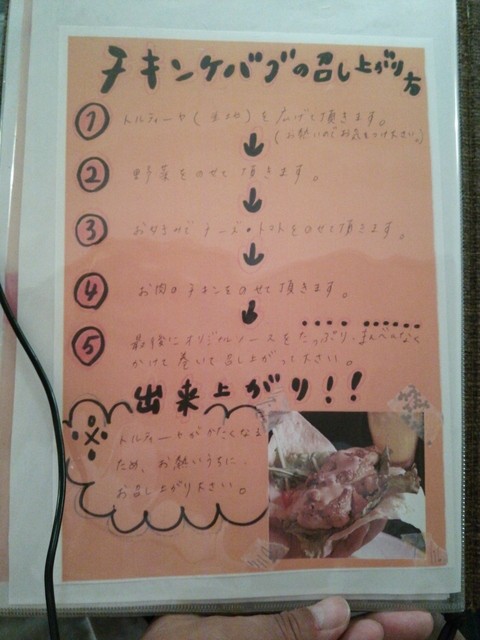 チキンケバブの召し上がり方
① トルティーヤ(生地)を広げて頂きます。
(お熱いのでお気をつけ下さい。)
② 野菜をのせて頂きます。
③ お好みでチーズ・トマトをのせて頂きます。
④ お肉のチキンをのせて頂きます。
⑤ 最後にオリジナルソースをたっぷり、まんべんなく
かけて巻いて召し上がって下さい。
出来上がり!!
トルティーヤがかたくなる
ため、お熱いうちに、
お召し上がり下さい。